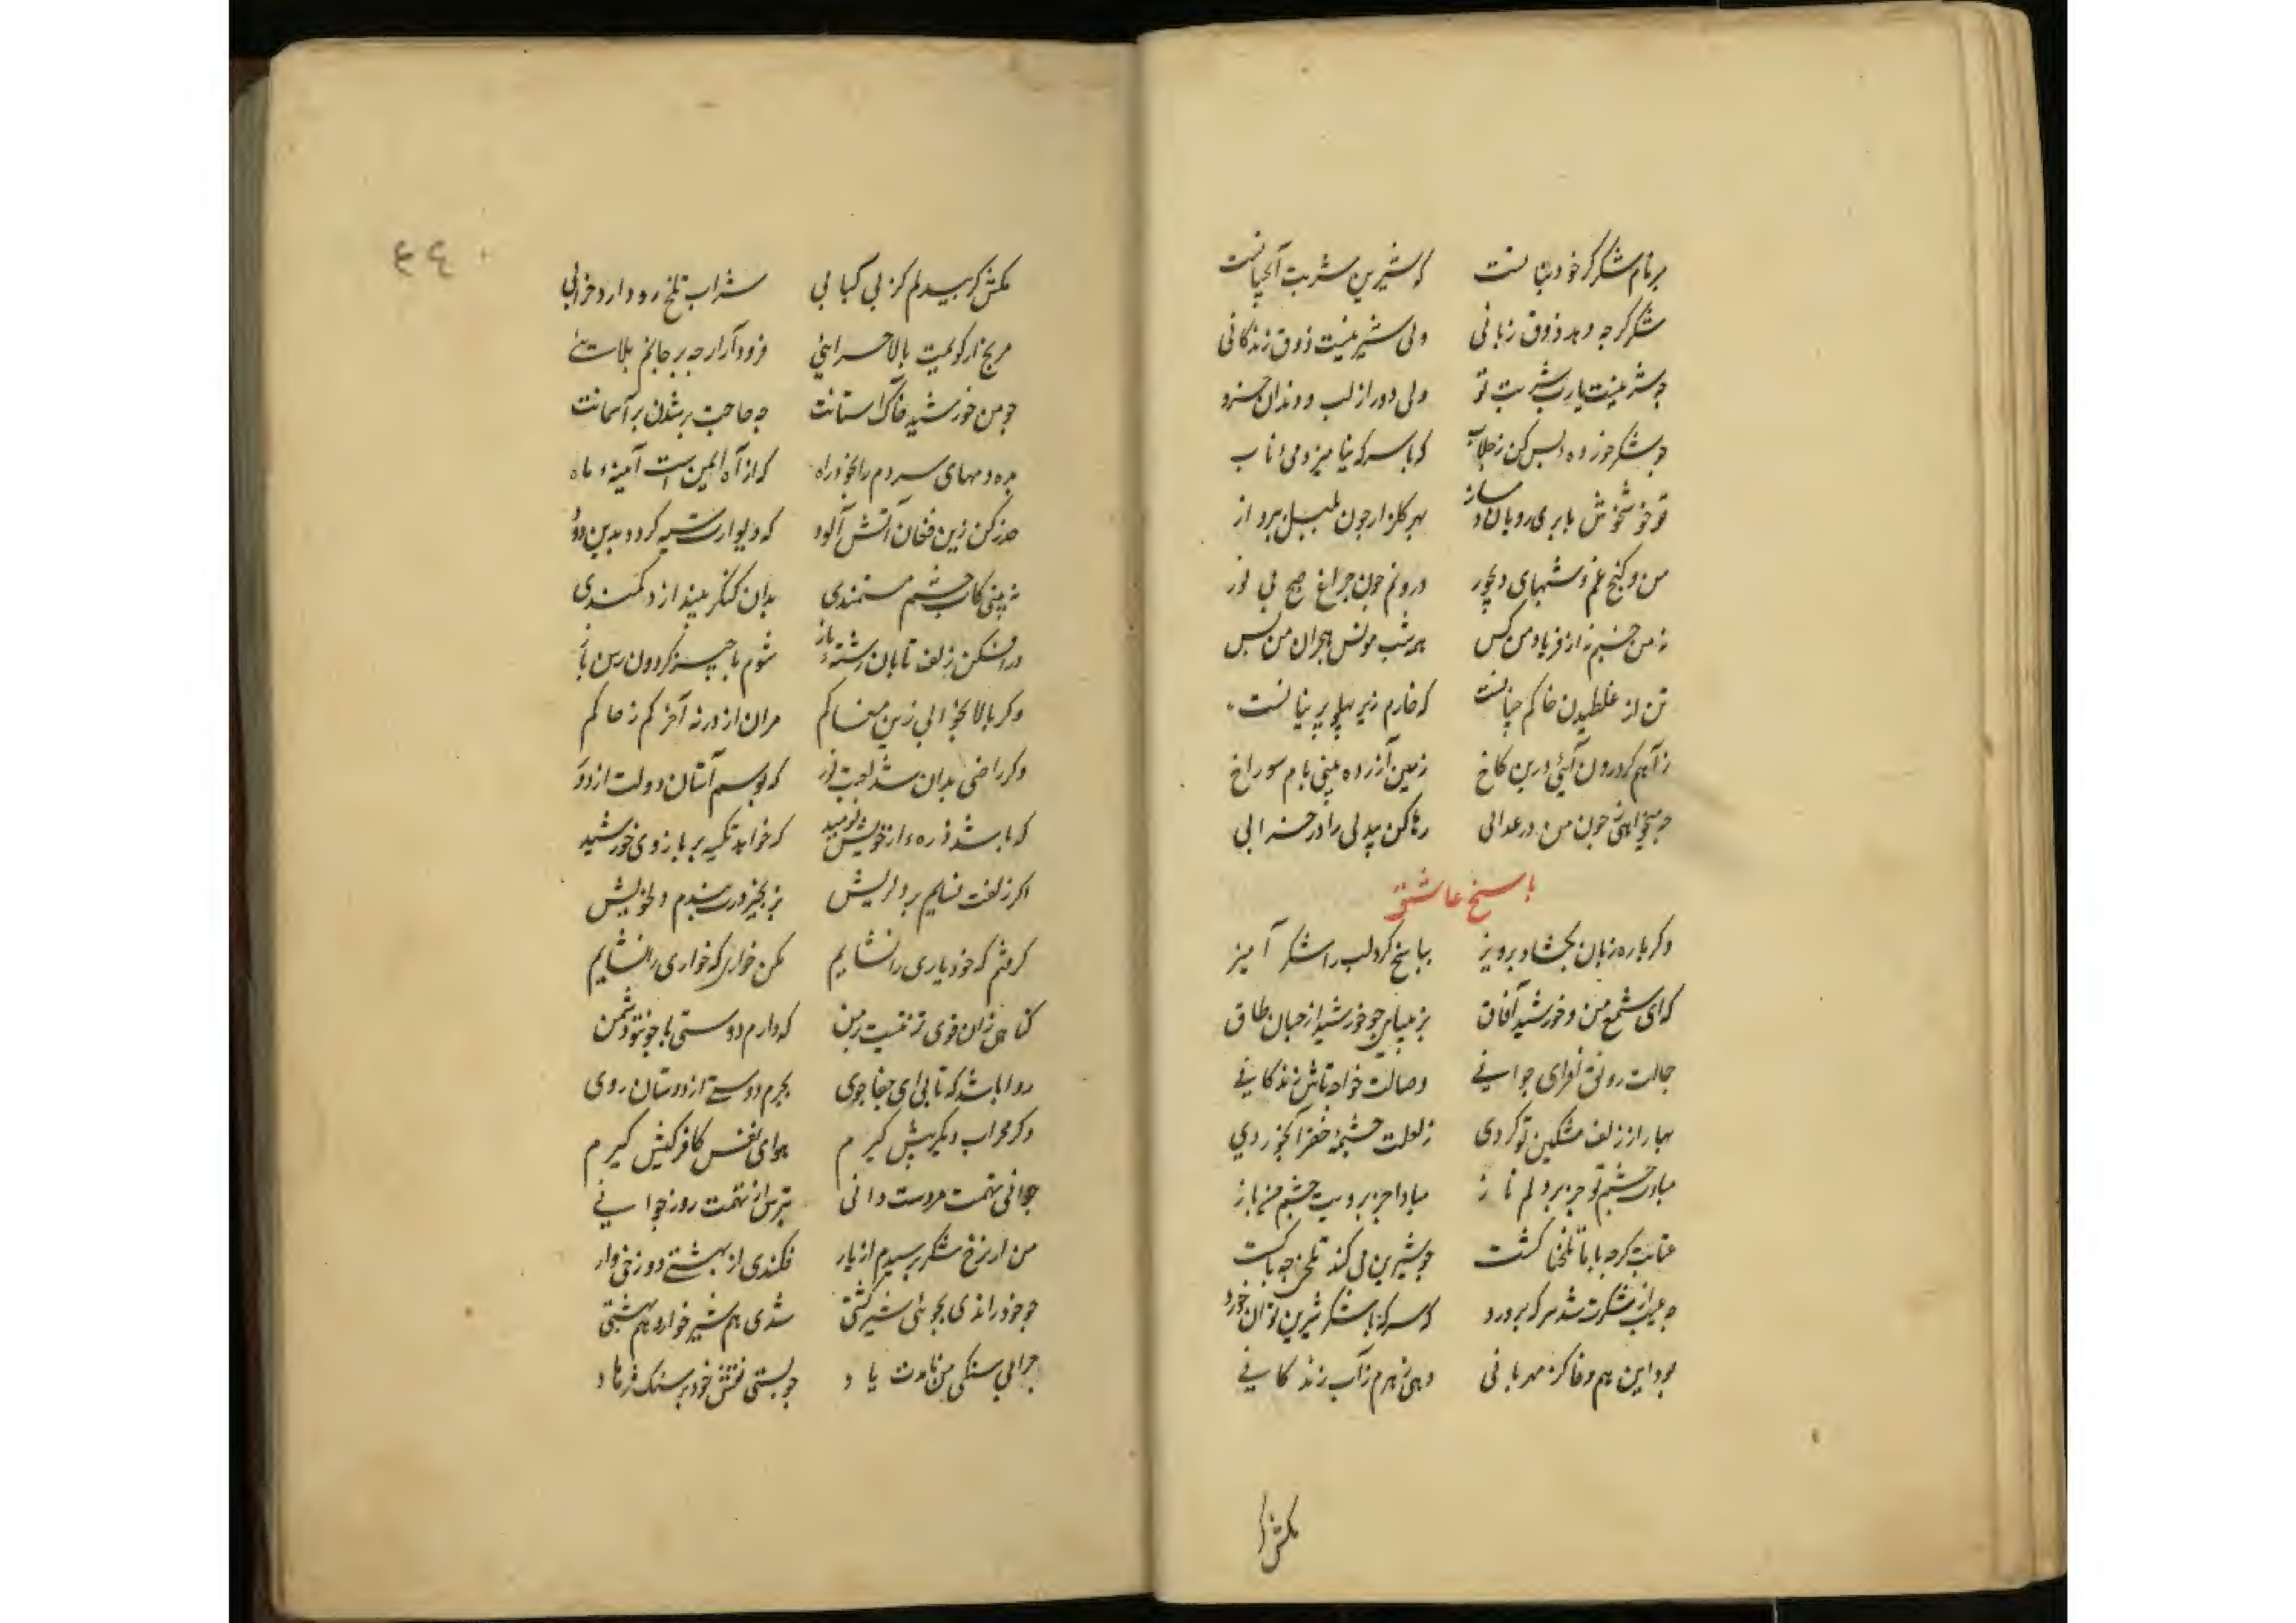 بر نام شکر کر خود بنا نست که شیرین شربت آنجیا نست
شکر کرچه دهد ذوق زبانی ولی شیر نیست ذوق زندکانی
جو شر نیست یارب شربت تو ولی دور از لب و دندان خسرو
جو شکر خورده بس کن ز جلاب که با سرکه نیامیزد می ناب
تو خوش خوش با بری رویان سار بهر کلزار جون بلبل برواز
من و کنج غم و شبهای دیجور درونم جون جراغ صبح بی نور
نه من خسبم نه از فریاد من کس همه شب مونس هجران من بس
تن از غلطیدن خاکم جنانست که خارم زیر پهلو پرنیانست
ز آهم کر درون آیی درین کاخ زمین آزرده بینی بام سوراخ
چه میخواهی ز جون من در عذابی رها کن بیدلی را در خرابی
باسخ عاشق
دکر باره زبان بکشاد برویز بباسخ کرد لب را شکر آمیز
که ای شمع من و خورشید آفاق بزیبایی جو خورشید از جهان طاق
جمالت رونق افزای جوانی وصالت خواجه تاش زندکانی
بهار از زلف مشکین تو کردی ز لعلت چشمه خضر آبخوردی
مباد چشم تو جز بر دلم ناز مبادا جز برویت چشم من باز
عتابت کرچه با ما تلخناکست جو شیرین می کند تلخی چه باکست
چه عیب از شکرت شد سرکه برورد که سرکه با شکر شیرین توان خورد
بود این هم وفا کز مهربانی دهی زهرم ز آب زندکانی
مکش کر
۴۴۰
مکش کر بیدلم کز بی کبابی شراب تلخ رو دارد خرابی
مرنج ار کویمت بالا خرامی فرود آر ار چه بر جانم بلا
جو من خورشید خاک آستانت چه حاجت بر شدن بر آسمانت
مده دمهای سردم را بخود راه که از آه ایمن است آیینه ماه
حذر کن زین فغان آتش آلود که دیوارت سیه کردد بدین دود
نه بینی کاب چشم مستمندی بدان کنکر میندازد کمندی
در افکن زلف تابان رشته باز شوم با چنبر کردون رسن باز
وکر بالا بخوانی زین مغاکم مران از در نه آخر کم ز خاکم
وکر راضی بدان شد لعبت نور که بوسم آستان دولت از دور
که باشد ذره از خویش نومید که خواهد تکیه بر بازوی خورشید
اکر زلفت نسایم بر دل ریش بزنجیر درت بندم دل خویش
کرفتم که خود یاری را نشایم مکن خواری که خواری را نشایم
کناهی زان قوی تر نیست بر من که دارم دوستی با چون تو دشمن
روا باشد که تابی ای جفاجوی بجرم دوستی از دوستان روی
وکر محراب دیکر پیش کیرم هوای نفس کافر کیش کیرم
جوانی تهمت مردست دانی بترس از تهمت روز جوانی
من ار نرخ شکر پرسیدم از یار فکندی از بهشتم دوزخی وار
جو خود راندی بجوی شیر کشتی شدی هم شیر خواره هم بهشتی
چرا بی سنکی من نامدت یاد جو بستی نقش خود بر سنک فرهاد